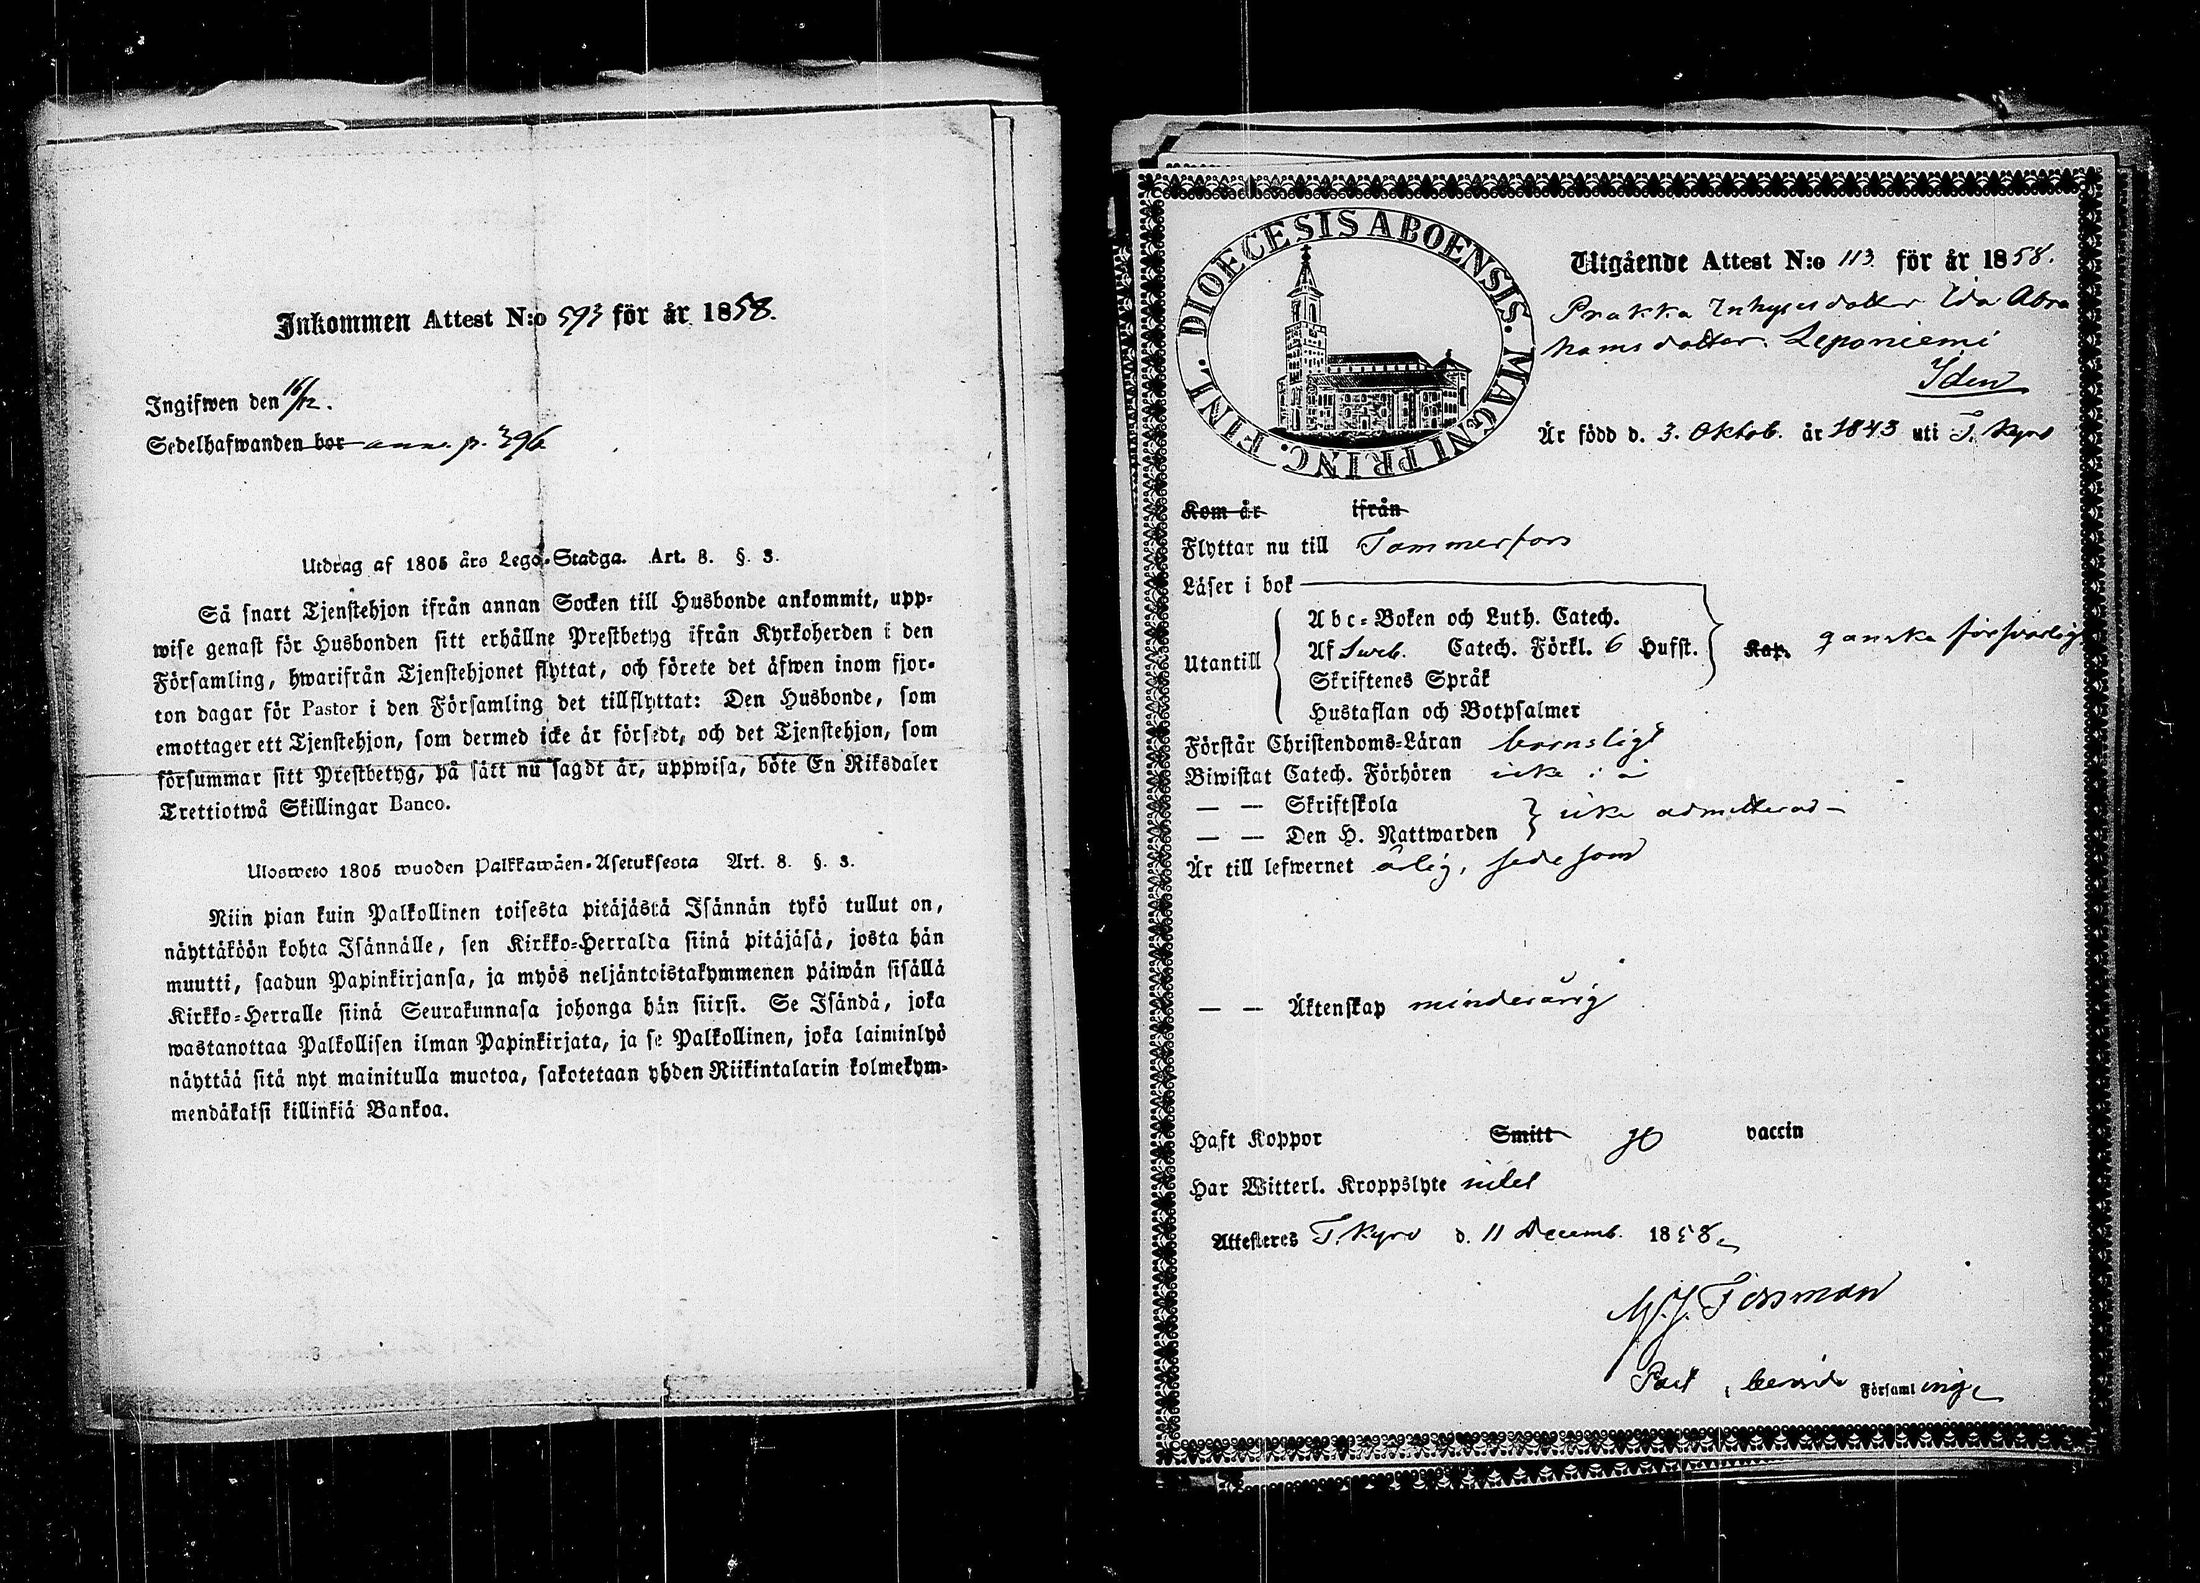 Inkommen Attest N:o 593 för år 1858.
Ingifwen den 16/12.
Sedelhafwanden bor ann. p. 396
Utdrag af 1805 års Lego-Stadga. Art. 8. §. 3.
Så snart Tjenstehjon ifrån annan Socken till Husbonde ankommit, upp-
wise genast för Husbonden sitt erhållne Prestbetyg ifrån Kyrkoherden i den
Församling, hwarifrån Tjenstehjonet flyttat, och förete det äfwen inom fjor-
ton dagar för Pastor i den Församling det tillflyttat: Den Husbonde, som
emottager ett Tjenstehjon, som dermed icke är försedt, och det Tjenstehjon, som
försummar sitt Prestbetyg, på sätt nu sagdt är, uppwisa, böte En Riksdaler
Trettiotwå Skillingar Banco.
Ulosweto 1805 wuoden Palkkawäen-Asetuksesta Art. 8. §. 3.
Niin pian kuin Palkollinen toisesta pitäjästä Isännän tykö tullut on,
näyttäköön kohta Isännälle, sen Kirkko-Herralda siinä pitäjäsä, josta hän
muutti, saadun Papinkirjansa, ja myös neljäntoistakymmenen päiwän sisällä
Kirkko-Herralle siinä Seurakunnasa johonga hän siirsi. Se Isändä, joka
wastanottaa Palkollisen ilman Papinkirjata, ja se Palkollinen, joka laiminlyö
näyttää sitä nyt mainitulla muotoa, sakotetaan yhden Riikintalarin kolmekym-
mendäkaksi killinkiä Bankoa.
DIOECESIS ABOENSIS. MAGNI PRINC. FINL.
Utgående Attest N:o 113 för år 1858.
Prakka Inhyses dotter Ida Abra
hams dotter Leponiemi
Iden
Är född d. 3. Oktob. år 1843 uti T. Kyro
Kom år ifrån
Flyttar nu till Tammerfors
Läser i bok
Utantill
Abc-Boken och Luth. Catech.
Af Sveb. Catech. Förkl. 6 Hufst.
Skriftenes Språk
Hustaflan och Botpsalmer
Kap. ganska försvarligt
Förstår Christendoms-Läran barnsligt
Biwistat Catech. Förhören icke
— — Skriftskola
— — Den H. Nattwarden
icke admitterad
Är till lefwernet ärlig, sedesam
— — Äktenskap minderårig
Haft Koppor Smitt vaccin
Har Witterl. Kroppslyte intet
Attesteres T. Kyro d. 11 Decemb. 1858
M. J. Forsman
Past i Församl